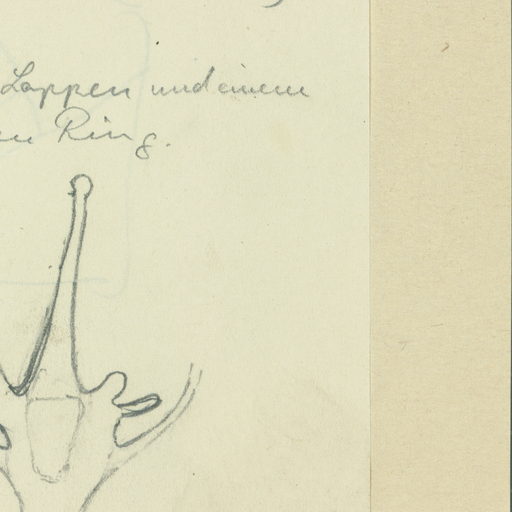 Lappen und einem
Ring.